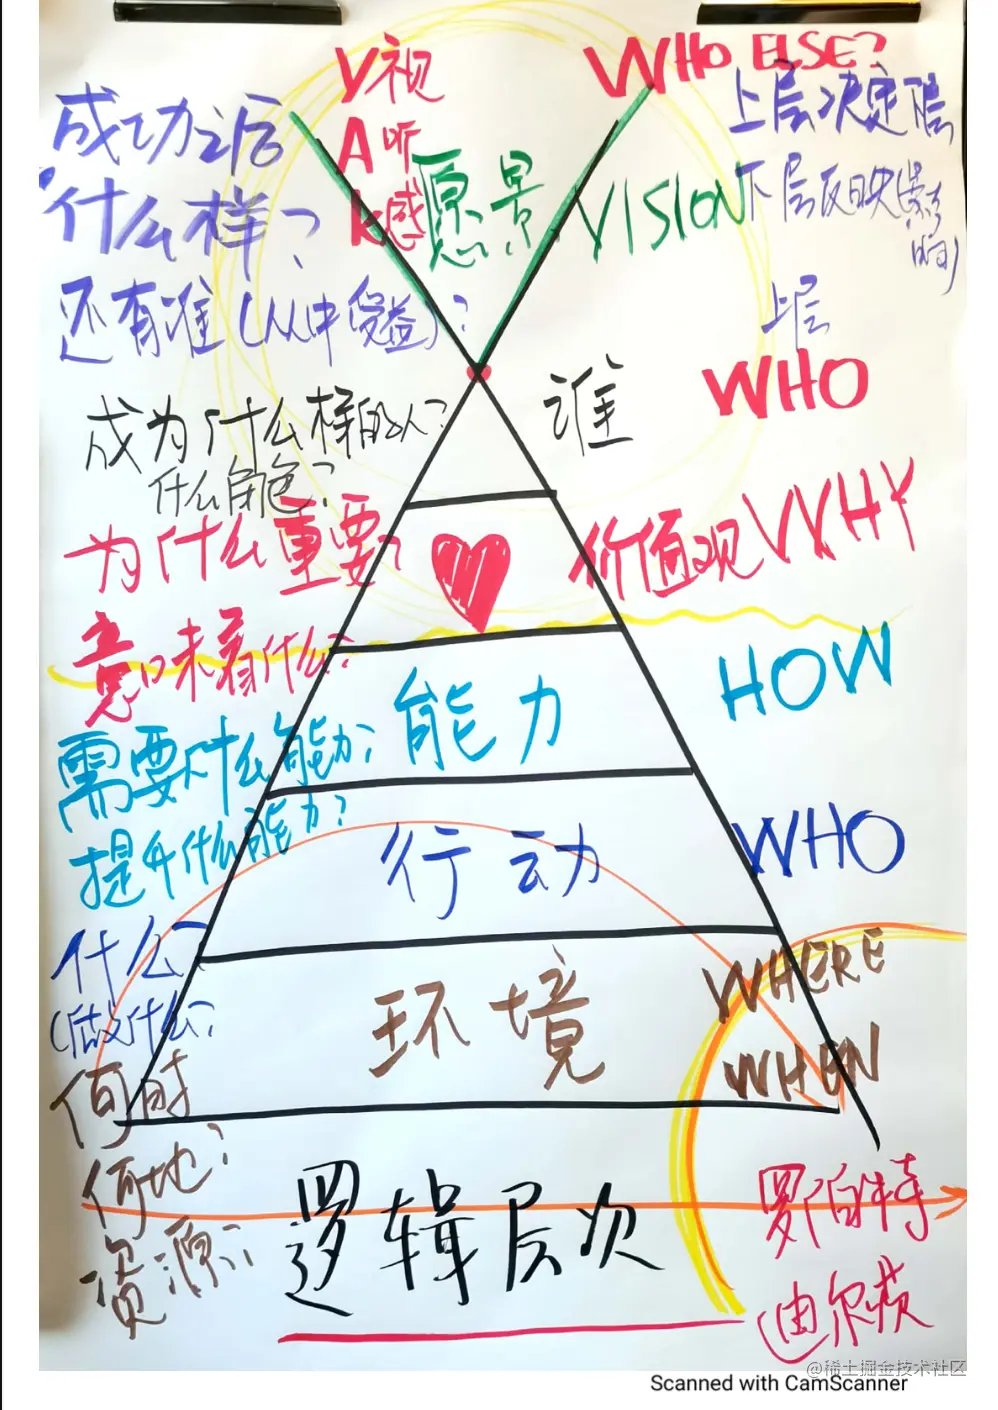 V视
WHO ELSE?
成功之后
A听
上层决定下层
什么样?
K感
愿景
VISION
下层反映(影响)
还有谁(从中受益)?
上层
成为什么样的人?
什么角色?
谁
WHO
为什么重要?
价值观
WHY
意味着什么?
需要什么能力?
能力
HOW
提升什么能力?
行动
WHO
什么?
(做什么?
环境
WHERE
WHEN
何时
何地?
资源?
逻辑层次
罗伯特
迪尔茨
@稀土掘金技术社区
Scanned with CamScanner